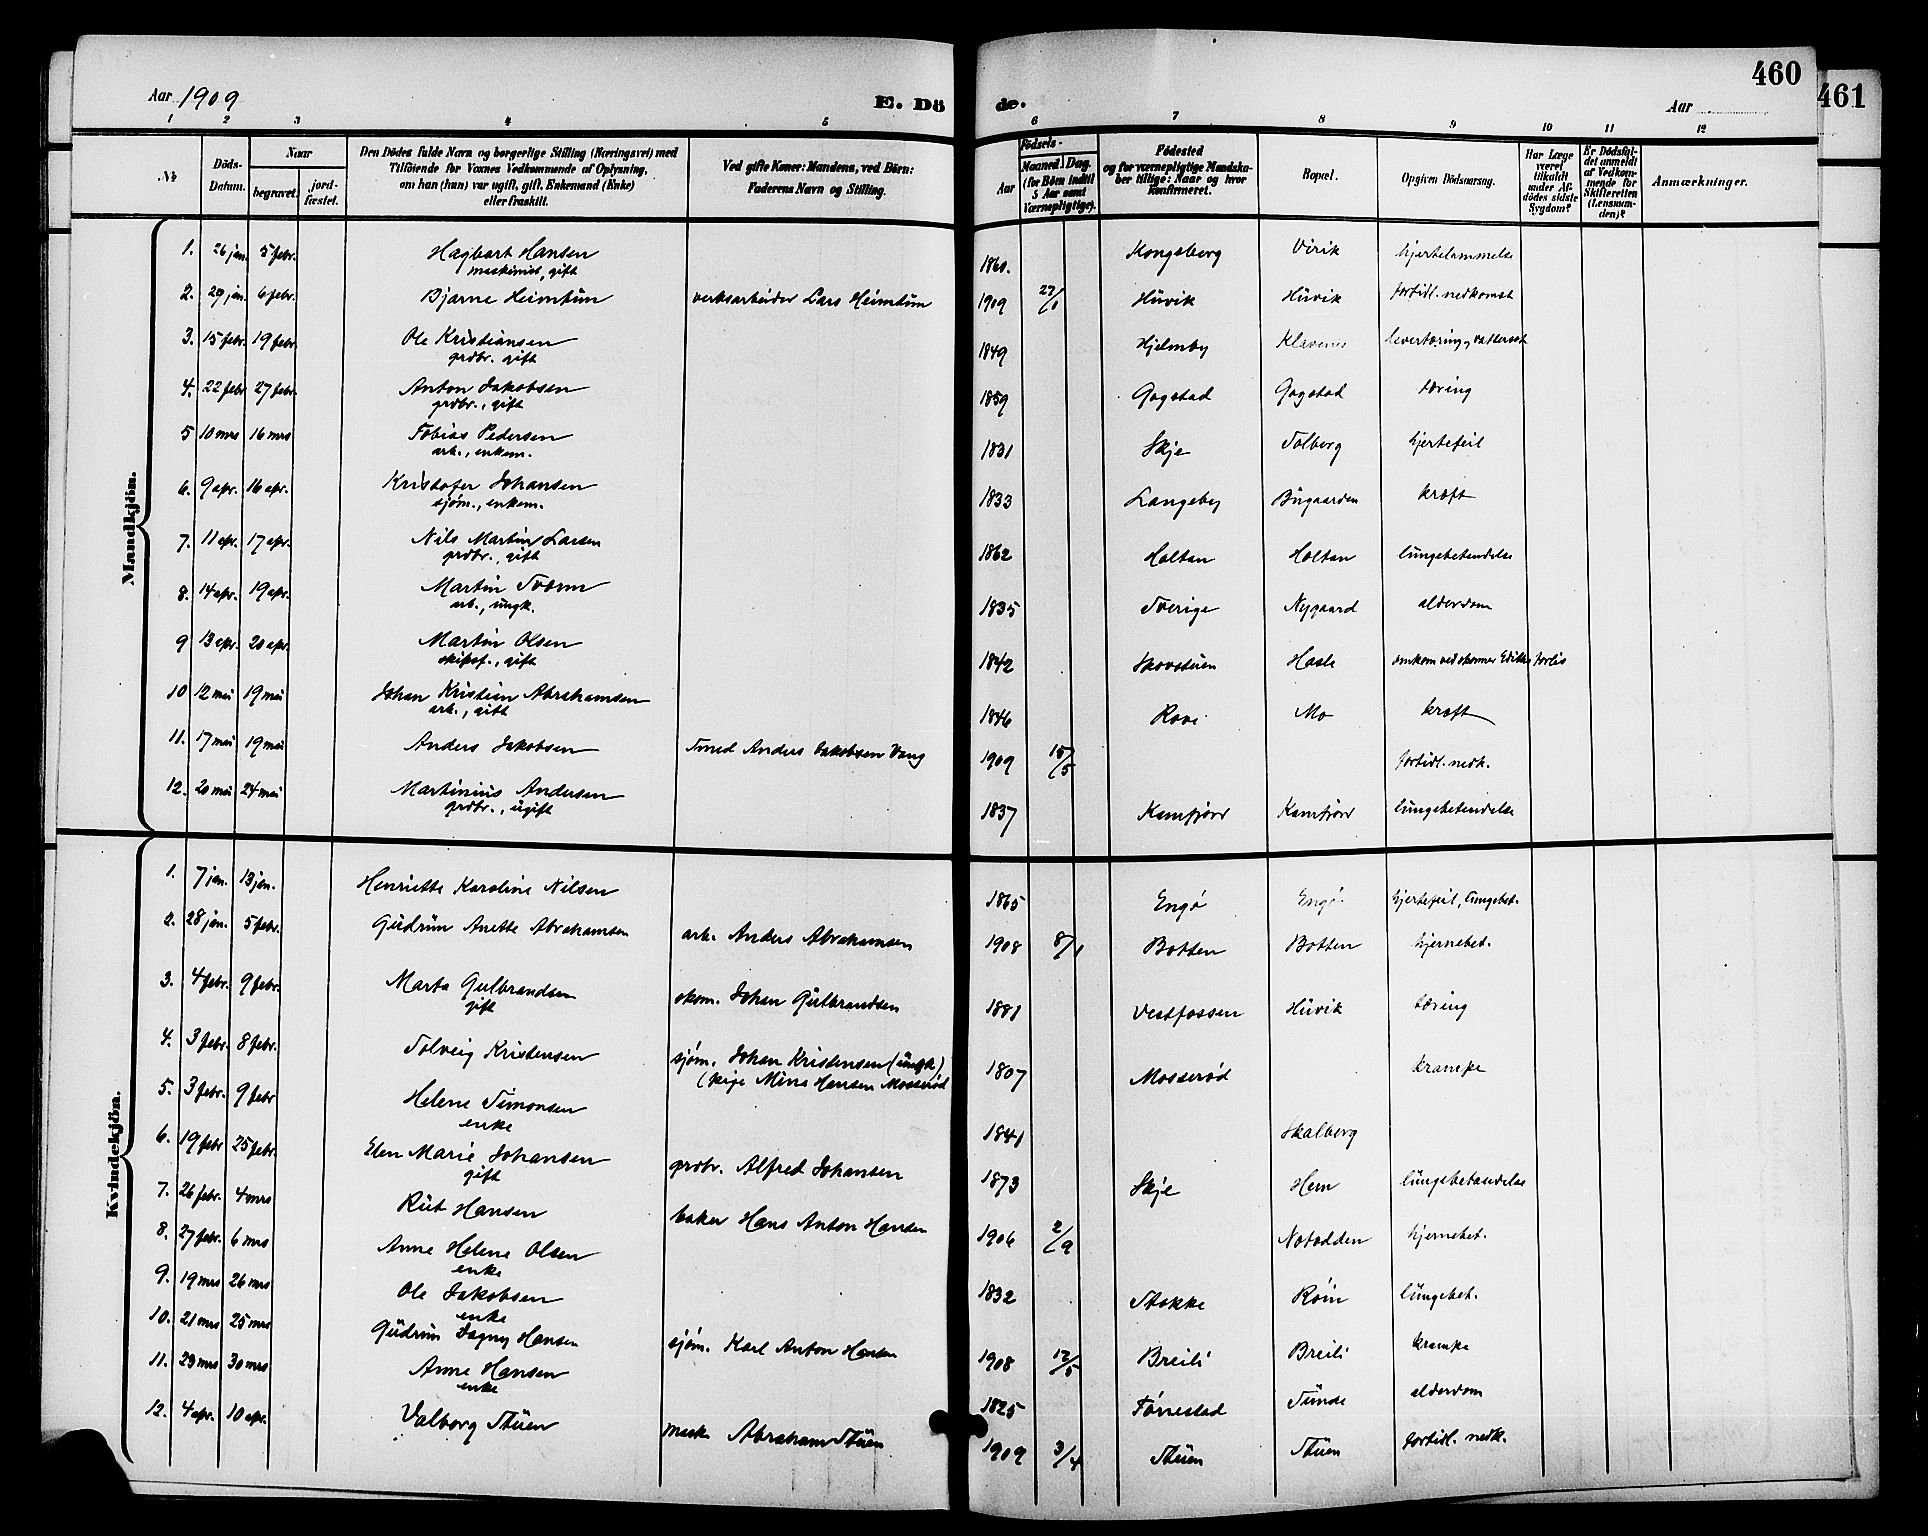 460
461
Aar 1909
E. Dö
de.
Aar
1 2 3 4 5 6 7 8 9 10 11 12
No
Döds-Datum.
Naar
begravet.
jord-fæstet.
Den Dödes fulde Navn og borgerlige Stilling (Næringsvei) med Tilföiende for Voxnes Vedkommende af Oplysning, om han (hun) var ugift, gift, Enkemand (Enke) eller fraskilt.
Ved gifte Koner: Mandens, ved Börn: Faderens Navn og Stilling.
Födsels-
Aar
Maaned. Dag. (for Börn indtil 5 Aar samt Værnepligtige).
Födested og for værnepligtige Mandskaber tillige: Naar og hvor Konfirmeret.
Bopæl.
Opgiven Dödsaarsag.
Har Læge været tilkaldt under Afdödes sidste Sygdom?
Er Dödsfaldet anmeldt af Vedkommende for Skifteretten (Lensmanden)?
Anmærkninger.
Mandkjön.
1. 26 jan. 5 febr. Hagbart Hansen 1860. Kongsberg Virik hjertelammelse
maskinist, gift
2. 29 jan. 6 febr. Bjarne Heimtun verksarbeider Lars Heimtun 1909 27/1 Huvik Huvik fortidl. nedkomst
3. 15 febr. 19 febr. Ole Kristiansen 1849 Hjelmby Klavenes levertæring, vattersot
grdbr. gift
4. 22 febr 27 febr. Anton Jakobsen 1859 Gogstad Gogstad tæring
grdbr., gift
5 10 mrs 16 mrs Tobias Pedersen 1831 Skje Solberg hjertefeil
arb., enkem.
6. 9 apr. 16 apr. Kristofer Johansen 1833 Langeby Bugaarden kræft
sjøm., enkem.
7. 11 apr. 17 apr. Nils Martin Larsen 1862 Holtan Holtan lungebetendelse
grdbr., gift
8. 14 apr. 19 apr. Martin Sværm 1835 Sverige Nygaard alderdom
arb., ungk.
9 13 apr. 20 apr. Martin Olsen 1842 Skovstuen Hasle omkom ved skonner Ediths forlis
skipsf., gift
10 12 mai 19 mai Johan Kristian Abrahamsen 1846 Rove Mo kræft
arb., gift
11. 17 mai 19 mai Anders Jakobsen Smed Anders Jakobsen Vang 1909 15/5 fortidl. nedk.
12. 20 mai 24 mai Martinius Andersen 1837 Kamfjord Kamfjord lungebetendelse
grdbr., ugift
Kvindekjön.
1. 7 jan. 13 jan. Henriette Karoline Nilsen 1865 Engø Engø hjertefeil, lungebet.
2. 28 jan. 5 febr. Gudrun Anette Abrahamsen arb. Anders Abrahamsen 1908 8/1 Botten Botten hjernebet.
3. 4 febr. 9 febr. Marta Gulbrandsen skom. Johan Gulbrandsen 1881 Vestfossen Huvik tæring
gift
4. 3 febr. 8 febr. Solveig Kristensen sjøm. Johan Kristensen (ungk) 1807 Mosserød krampe
(pige Mina Hansen Mosserød
5. 3 febr. 9 febr Helene Simonsen 1841 Skalberg
enke
6. 19 febr 25 febr. Elen Marie Johansen grdbr. Alfred Johansen 1873 Skje Hem lungebetendelse
gift
7. 26 febr. 4 mrs Rut Hansen baker Hans Anton Hansen 1906 2/9 Notodden hjernebet.
8. 27 febr. 6 mrs Anne Helene Olsen 1832 Stokke Røin lungebet.
enke
9. 19 mrs 26 mrs Ole Jakobsen
enke
10. 21 mrs 25 mrs Gudrun Dagny Hansen sjøm. Karl Anton Hansen 1908 12/5 Breili Breili krampe
11. 23 mrs 30 mrs Anne Hansen 1825 Førrestad Sunde alderdom
enke
12. 4 apr. 10 apr. Valborg Stuen mask. Abraham Stuen 1909 3/4 Stuen Stuen fortidl. nedk.